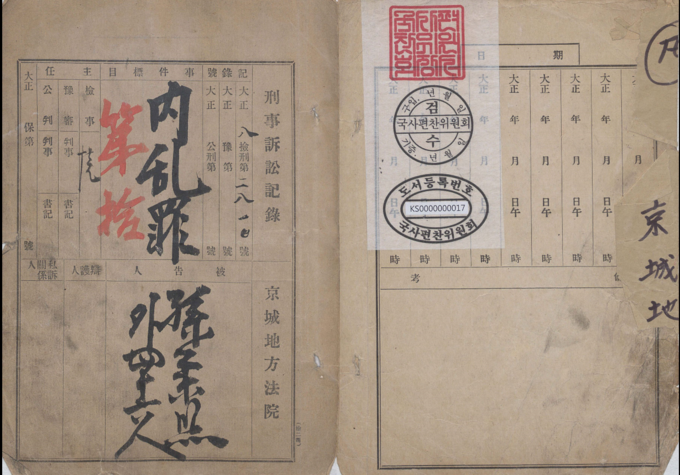 刑事訴訟記錄
京城地方法院
記錄號
大正八檢刑第二八一七號
大正 豫第 號
大正 公刑第 號
事件標目
內乱罪
第拾
主任
檢事
豫審判事 書記
公判判事 書記
大正 保第 號
被告人
孫秉熙
外四十六人
辯護人
私訴關係人
期日
大正 年 月 日午 時
大正 年 月 日午 時
大正 年 月 日午 時
大正 年 月 日午 時
大正 年 月 日午 時
大正 年 月 日午 時
備考
구입 년 월 일
검
국사편찬위원회
수
기증 년 월 일
도서등록번호
KS0000000017
국사편찬위원회
京城地